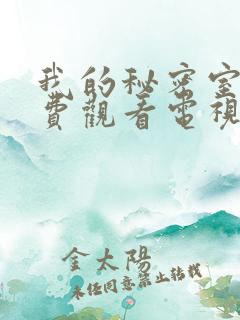 我的秘密室
費觀看電視
金太陽
未经同意禁止转载